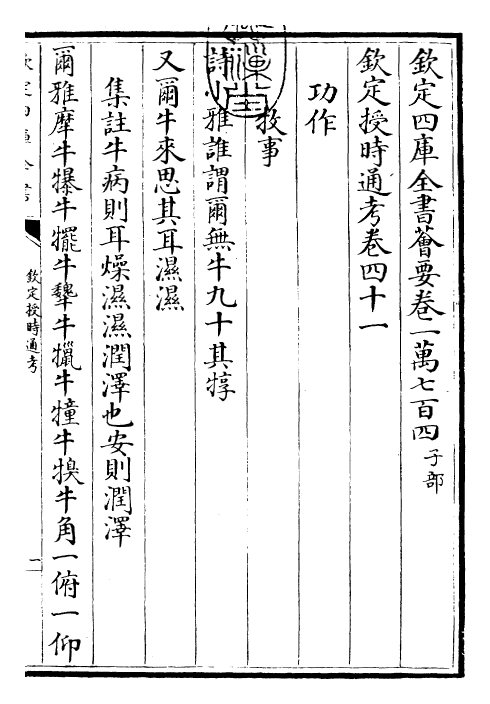 欽定四庫全書薈要卷一萬七百四子部
欽定授時通考卷四十一
功作
牧事
詩小雅誰謂爾無牛九十其犉
又爾牛來思其耳濕濕
集註牛病則耳燥濕濕潤澤也安則潤澤
爾雅摩牛犦牛犤牛犩牛犣牛犝牛犑牛角一俯一仰
欽定四庫全書
欽定授時通考
一